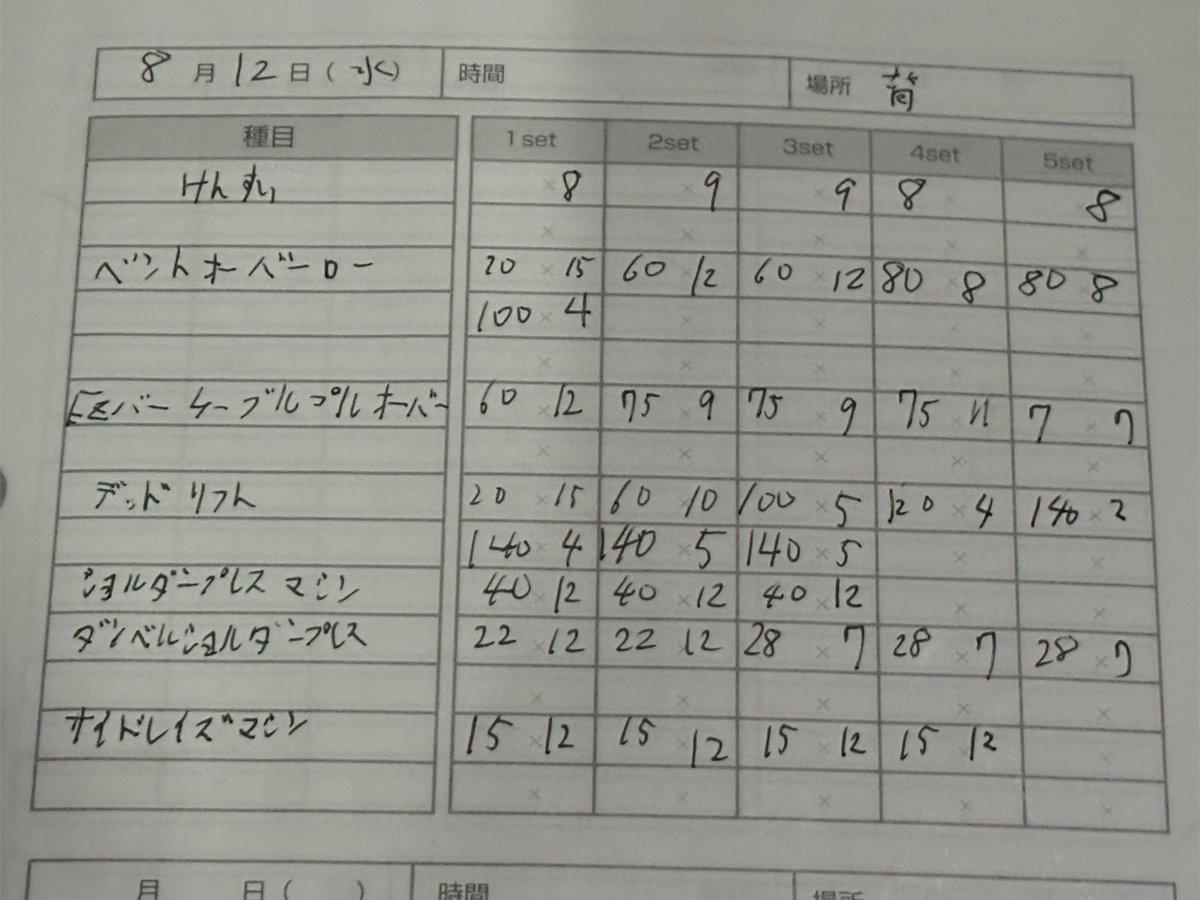 8月12日(水) 時間 場所 荷
種目 1set 2set 3set 4set 5set
けん丸 ×8 ×9 ×9 8 8
× × × ×
ベントオーバーロー 20×15 60 12 60 12 80 8 80 8
100×4 × × × ×
× × × ×
Ezバーケーブルプルオーバー 60 12 75 9 75 9 75 11 7 7
× × × × ×
デッドリフト 20×15 60 10 100×5 120×4 140×2
140×4 140×5 140×5 × ×
ショルダープレスマシン 40 12 40×12 40×12 × ×
ダンベルショルダープレス 22×12 22 12 28×7 28×7 28×7
× × × × ×
サイドレイズマシン 15×12 15×12 15×12 15 12 ×
× × × × ×
月 日( ) 時間 場所